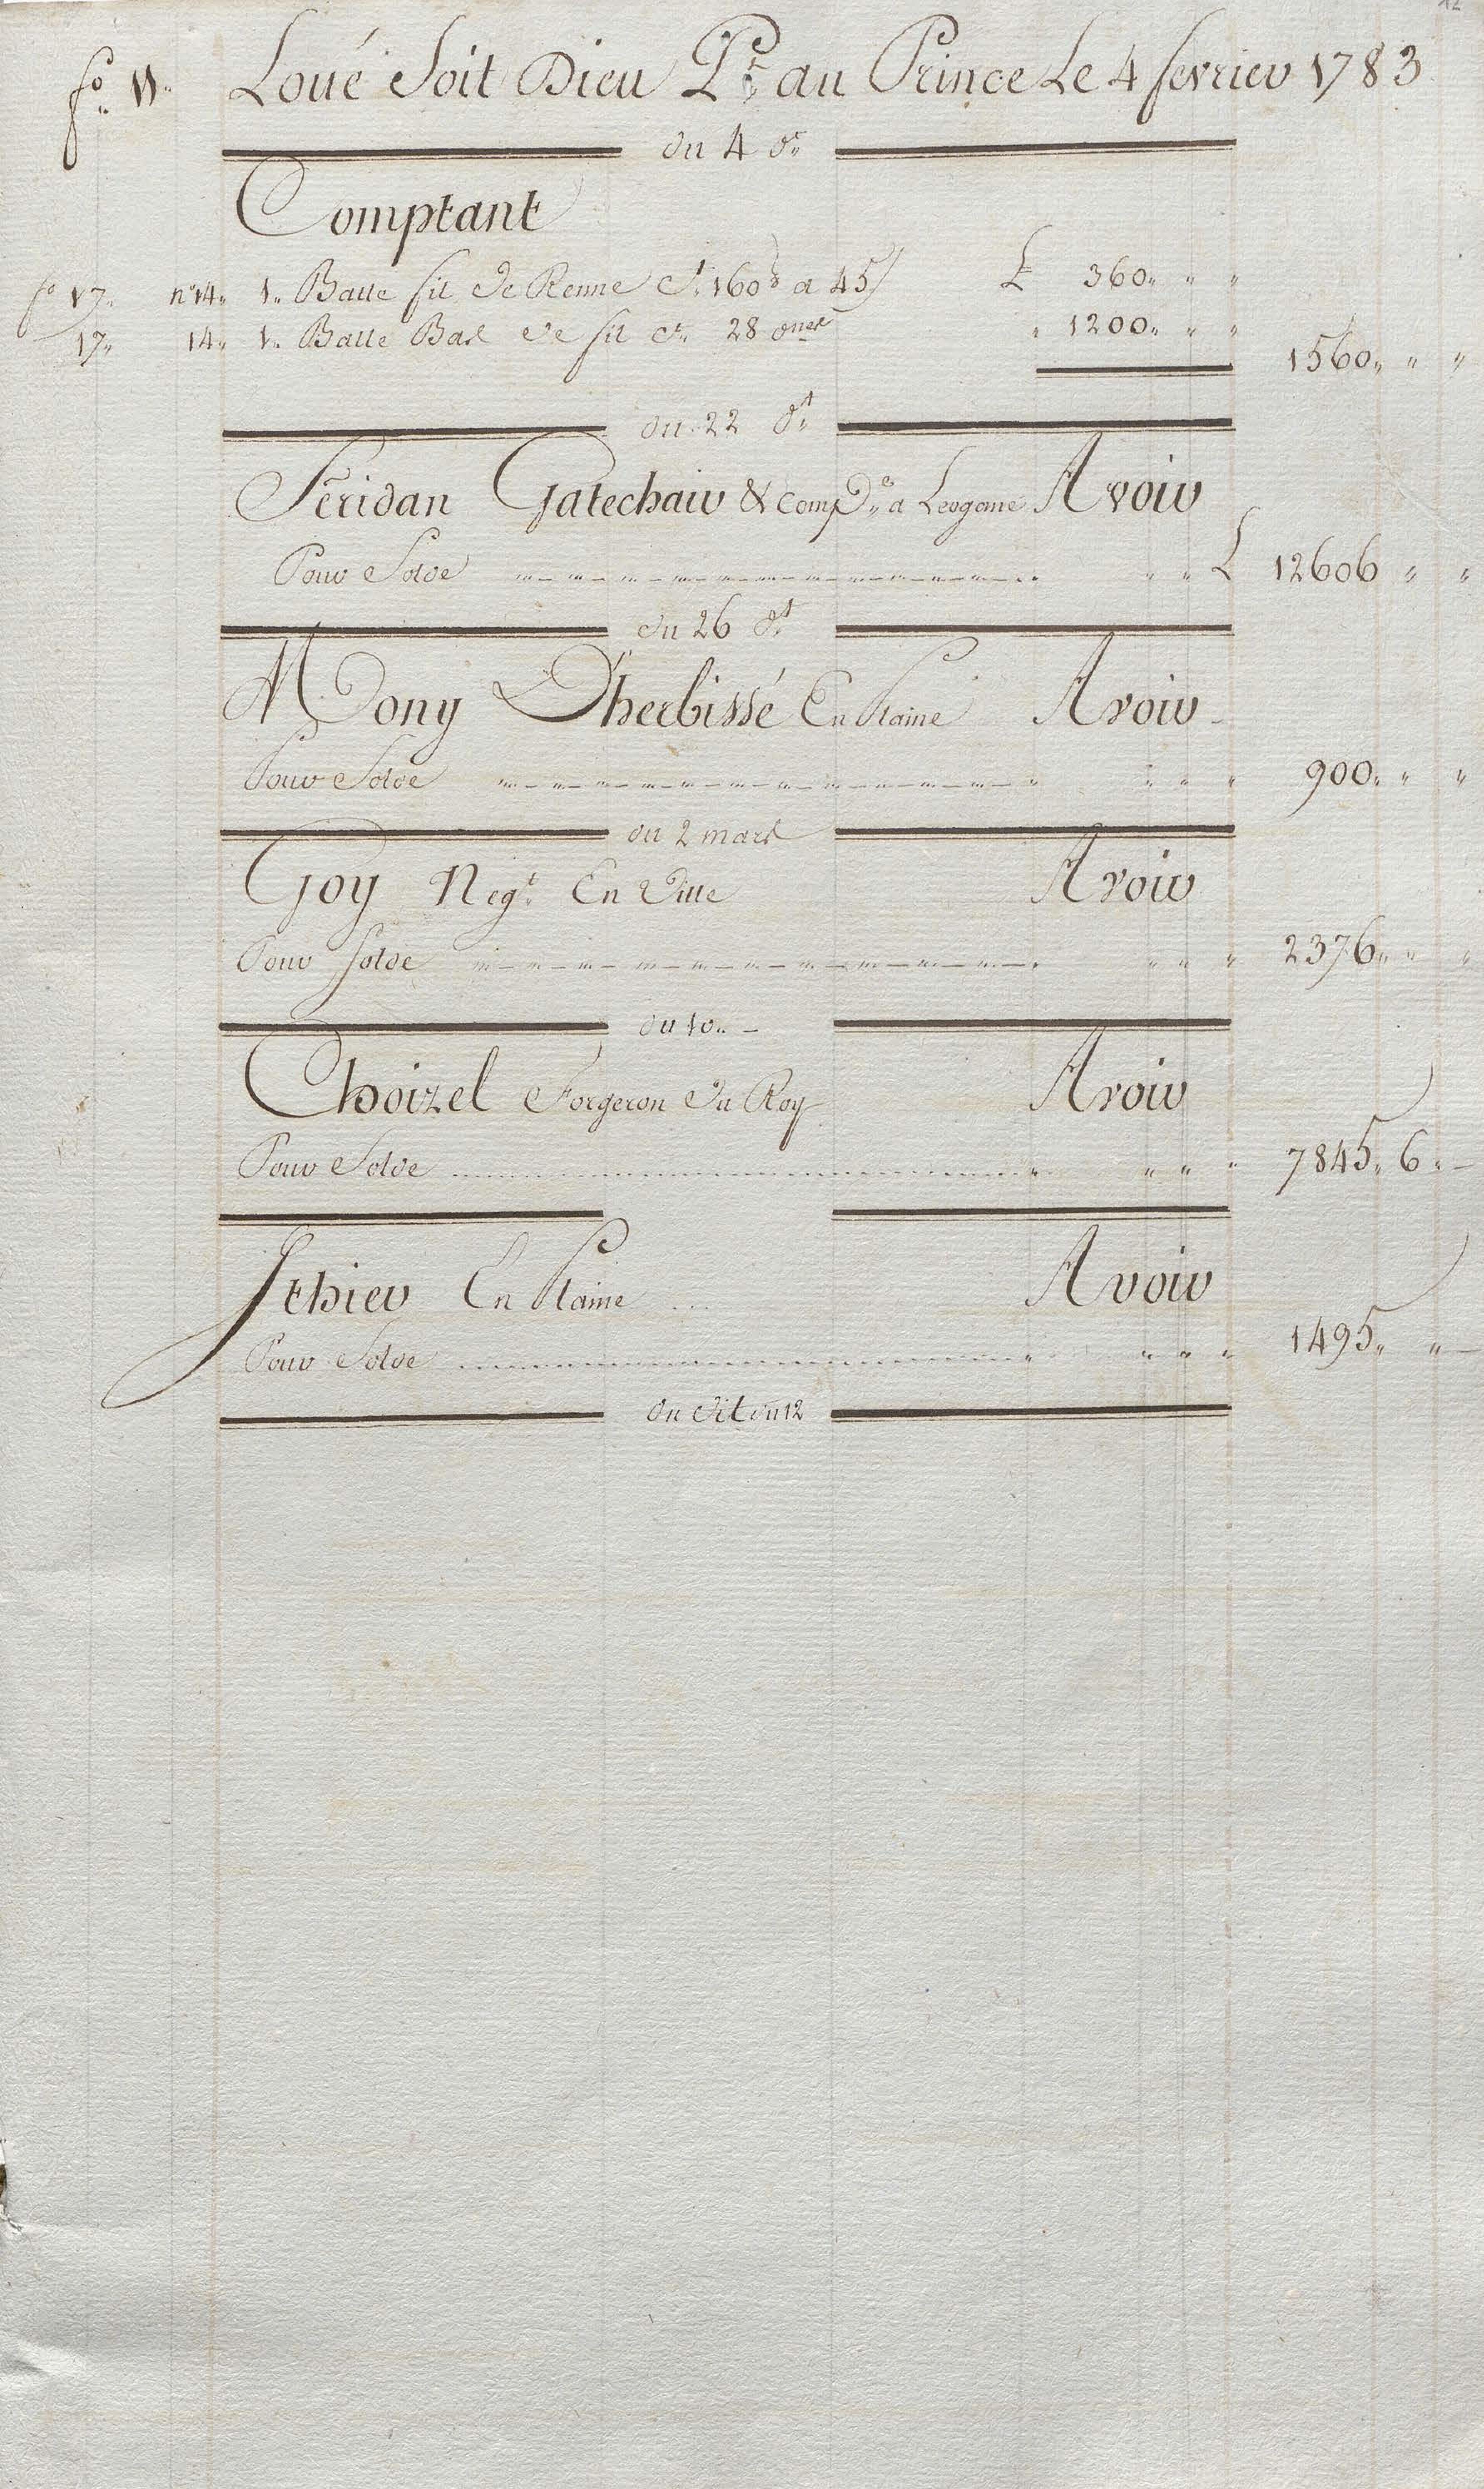 12
fo 11 Loué Soit Dieu Pt au Prince Le 4 fevrier 1783
du 4 dt
Comptant
fo 17 no 14 1 Balle fil de Renne ct 160 a 45 £ 360 " "
17 14 1 Balle Bas de fil ct 28 dnes " 1200 " "
1560 " "
du 22 dt
Feridan Gatechair & Compe a Leogane Avoir
Pour Solde " " £ 12606 " "
du 26 dt
Mony D'herbissé En Plaine Avoir
Pour Solde " " " 900 " "
du 2 mars
Goy Negt En Ville Avoir
Pour Solde " " " 2376 " "
du 10
Choizel Forgeron du Roy Avoir
Pour Solde " " " 7845 6 –
Ithier En Plaine Avoir
Pour Solde " " " 1495 " –
du dit du 12